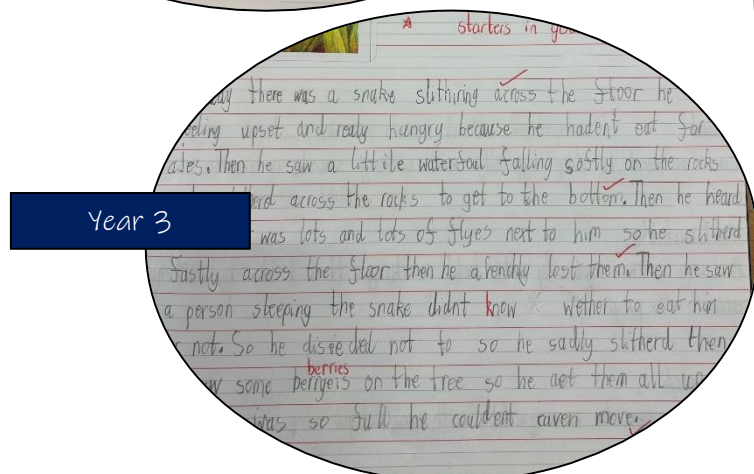 starters in
there was a snake slithiring across the floor he
upset and realy hungry because he hadent eat for
Then he saw a littile waterfoul falling softly on the rocks
across the rocks to get to the bottom. Then he heard
Year 3
was lots and lots of flyes next to him so he slitherd
fastly across the floor then he afenchly lost them. Then he saw
a person sleeping the snake didnt know wether to eat him
not. So he disieded not to so he sadly slitherd then
berries
some berryeis on the tree so he aet them all up
was so full he couldent euven move.